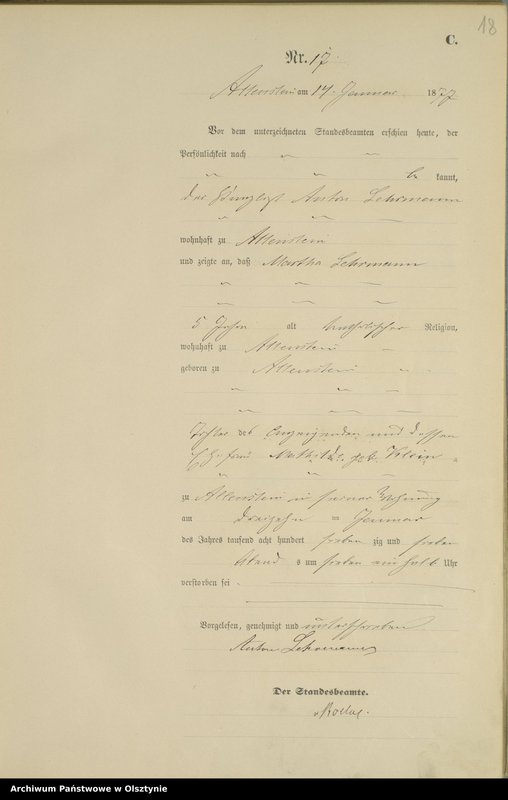 18
C.
Nr. 17.
Allenstein am 14. Januar 1877
Vor dem unterzeichneten Standesbeamten erschien heute, der
Persönlichkeit nach
be kannt,
der Anton Lehrmann
wohnhaft zu Allenstein
und zeigte an, daß Martha Lehrmann
5 Jahre alt katholischer Religion,
wohnhaft zu Allenstein
geboren zu Allenstein
Tochter des Anzeigenden und dessen
Ehefrau Mathilde geb. Klein
zu Allenstein in seiner Wohnung
am dreizehn ten Januar
des Jahres tausend acht hundert sieben zig und sieben
Abend s um sieben ein halb Uhr
verstorben sei
Vorgelesen, genehmigt und unterschrieben
Anton Lehrmann
Der Standesbeamte.